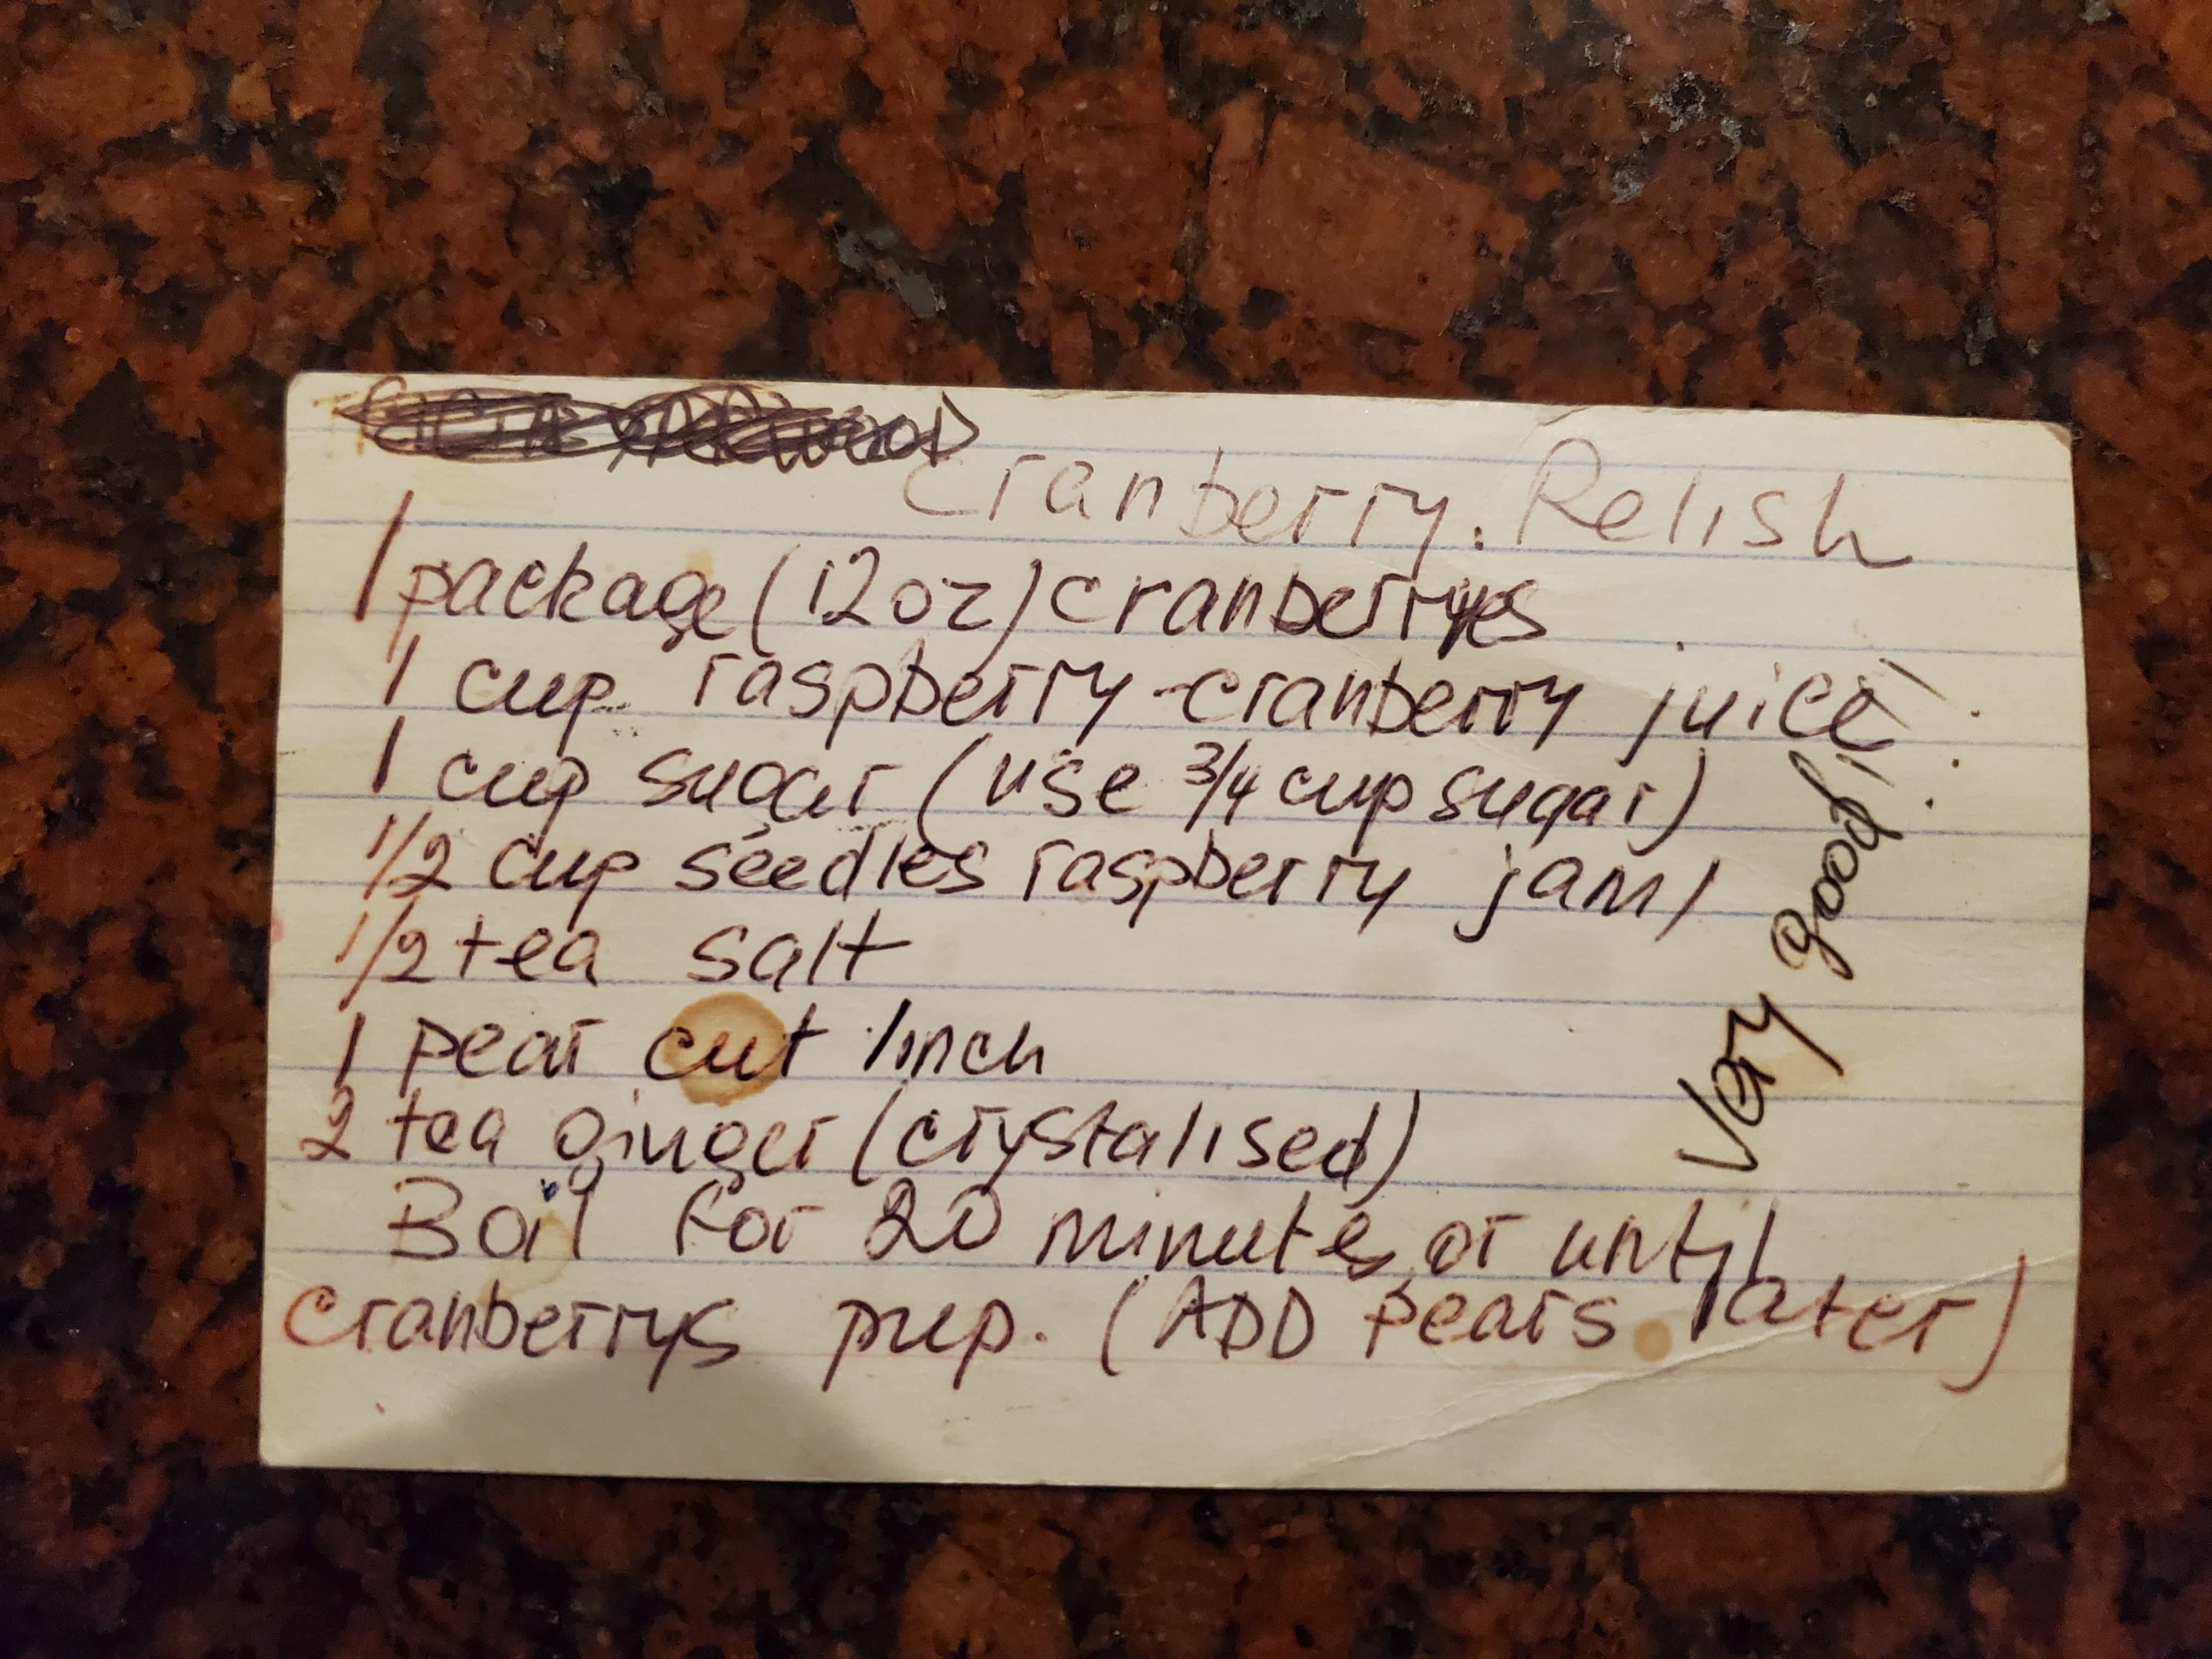 Cranberry. Relish
1 package (12 oz) cranberryes
1 cup raspberry-cranberry juice
1 cup sugar (use 3/4 cup sugar)
1/2 cup seedles raspberry jam
1/2 tea salt
1 pear cut 1 inch
2 tea ginger (crystalised)
Boil for 20 minutes or until
cranberrys pup. (ADD pears later)
Very good!